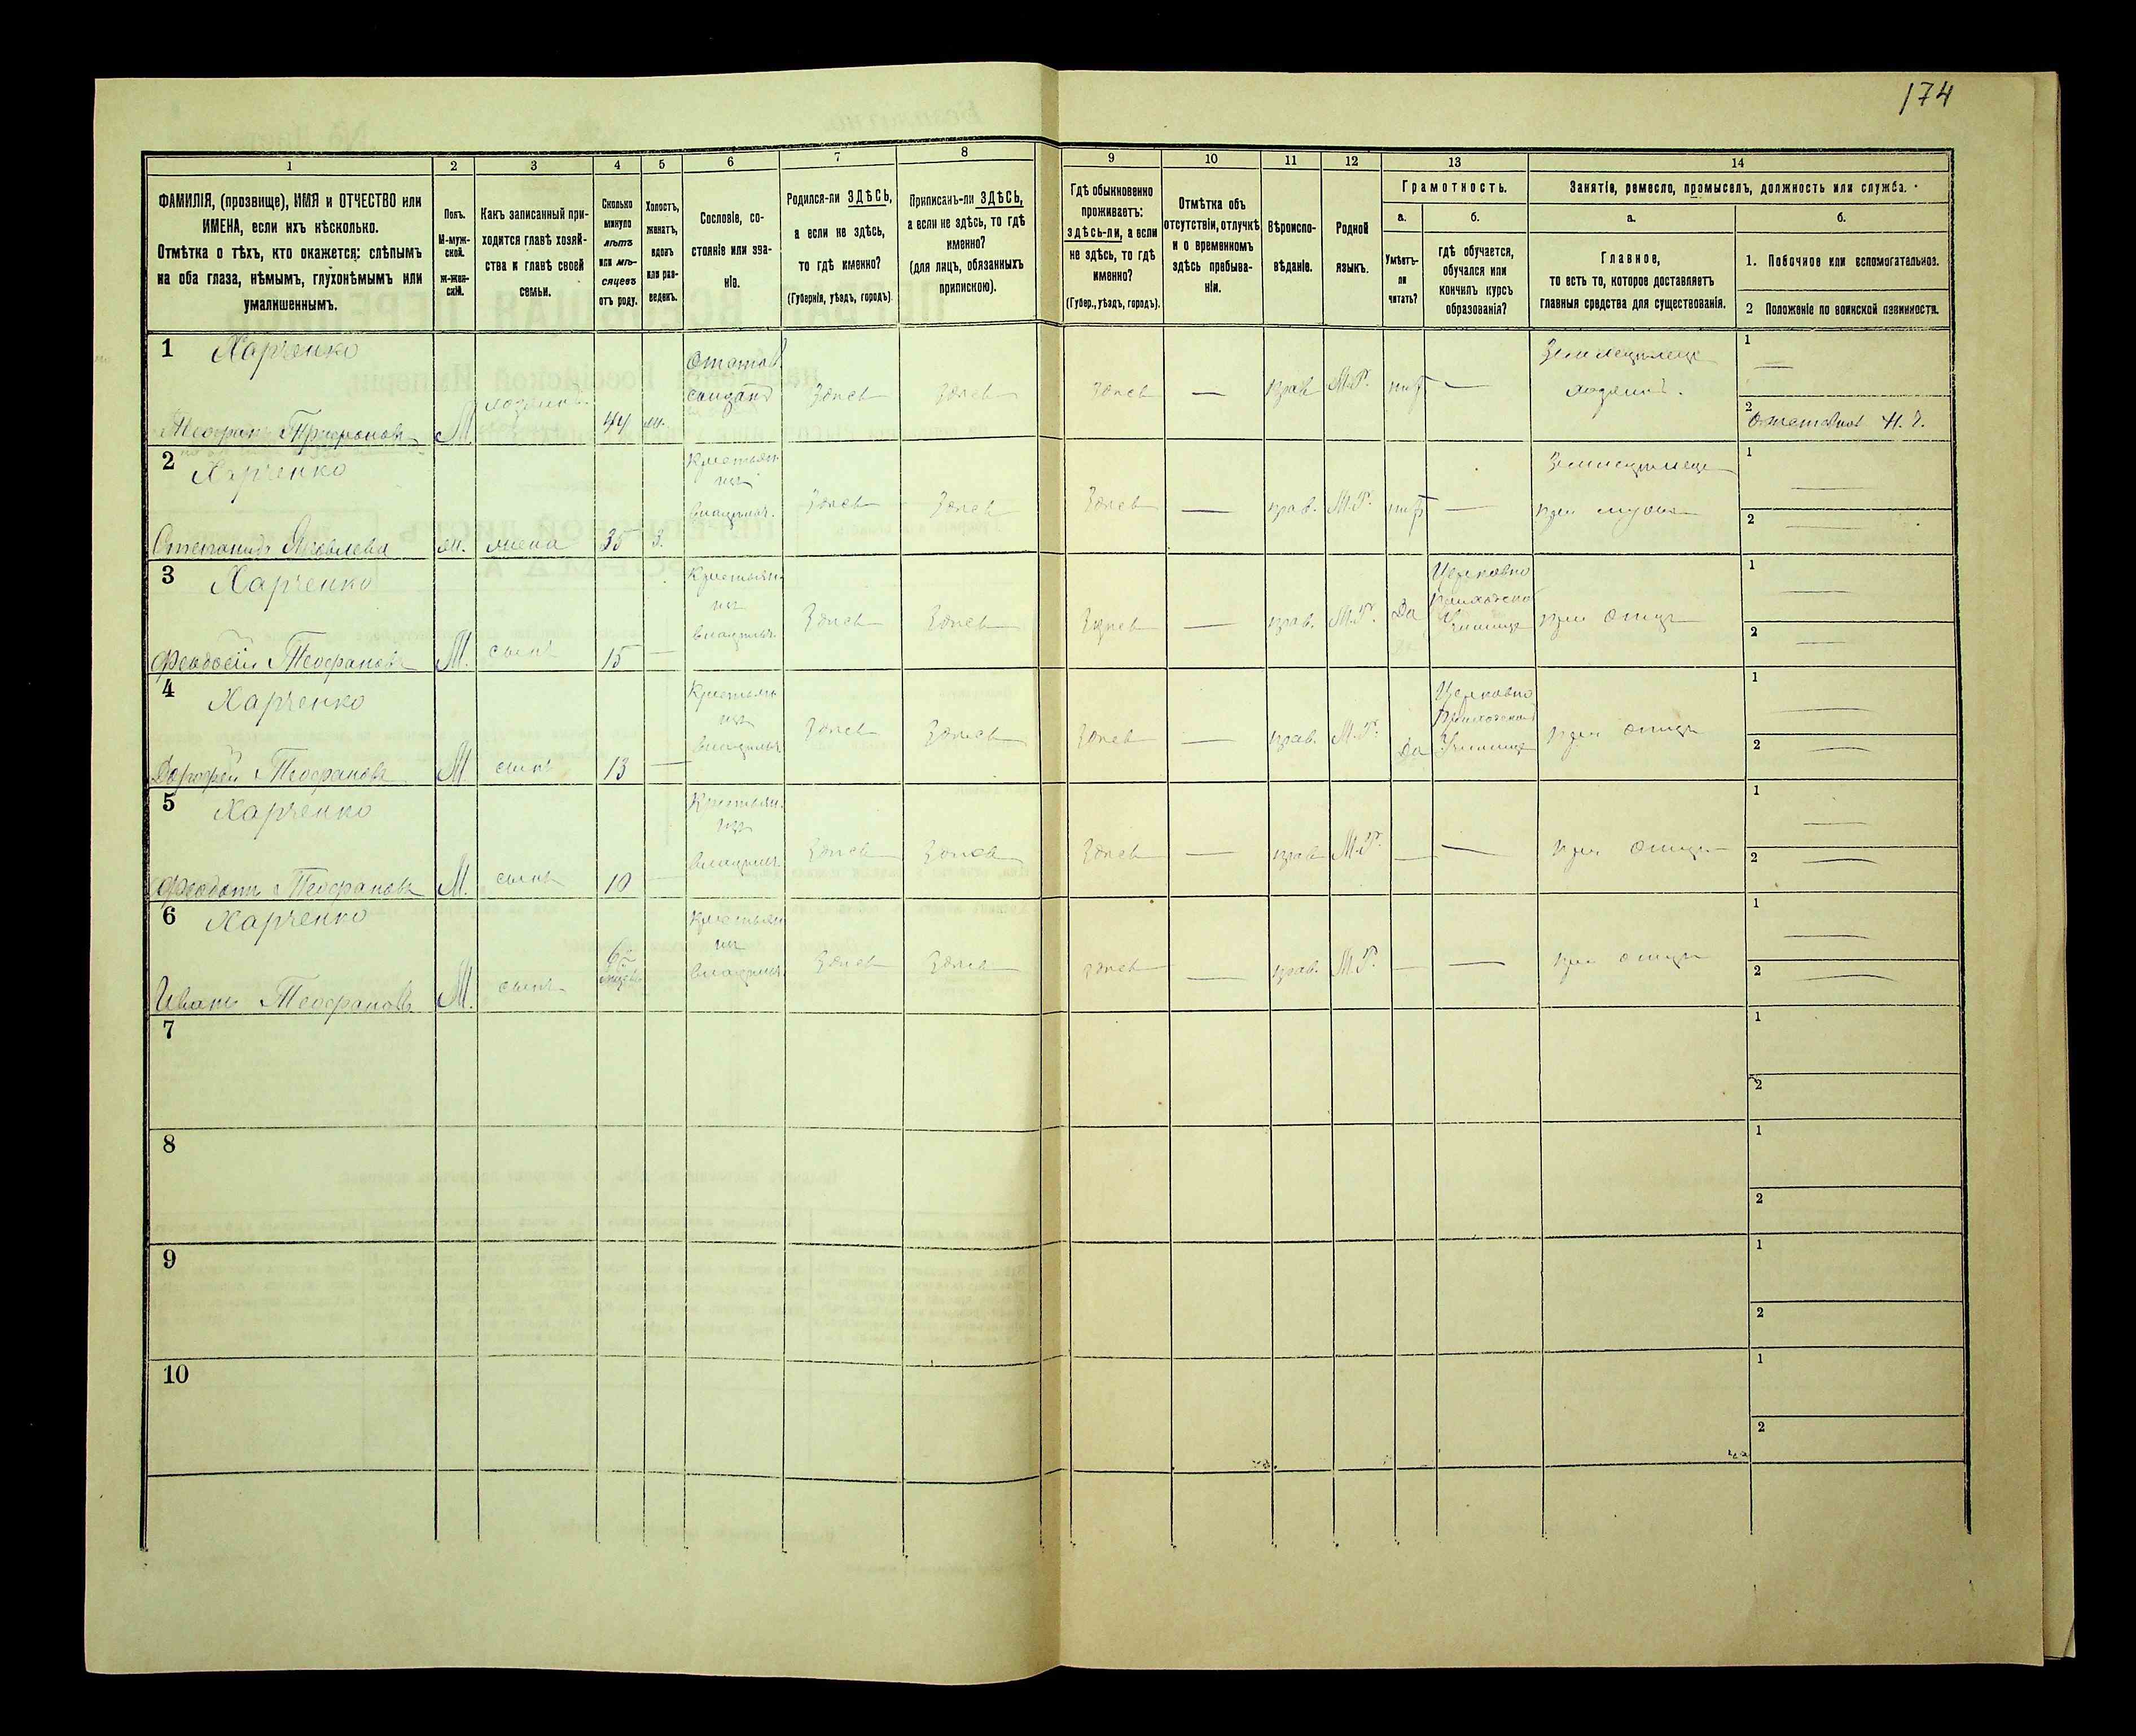 174
1
2
3
4
5
6
7
8
9
10
11
12
13
14
ФАМИЛІЯ, (прозвище), ИМЯ и ОТЧЕСТВО или
ИМЕНА, если ихъ нѣсколько.
Отмѣтка о тѣхъ, кто окажется: слѣпымъ
на оба глаза, нѣмымъ, глухонѣмымъ или
умалишеннымъ.
Полъ.
М-муж-
ской.
ж-жен-
скій.
Какъ записанный при-
ходится главѣ хозяй-
ства и главѣ своей
семьи.
Сколько
минуло
лѣтъ
или мѣ-
сяцевъ
отъ роду.
Холостъ,
женатъ,
вдовъ
или раз-
веденъ.
Сословіе, со-
стояніе или зва-
ніе.
Родился-ли ЗДѢСЬ,
а если не здѣсь,
то гдѣ именно?
(Губернія, уѣздъ, городъ).
Приписанъ-ли ЗДѢСЬ,
а если не здѣсь, то гдѣ
именно?
(для лицъ, обязанныхъ
припискою).
Гдѣ обыкновенно
проживаетъ:
здѣсь-ли, а если
не здѣсь, то гдѣ
именно?
(Губер., уѣздъ, городъ).
Отмѣтка объ
отсутствіи, отлучкѣ
и о временномъ
здѣсь пребыва-
ніи.
Вѣроиспо-
вѣданіе.
Родной
языкъ.
Грамотность.
а.
б.
Умѣетъ-
ли
читать?
гдѣ обучается,
обучался или
кончилъ курсъ
образованія?
Занятіе, ремесло, промыселъ, должность или служба.
а.
б.
Главное,
то есть то, которое доставляетъ
главныя средства для существованія.
1. Побочное или вспомогательное.
2 Положеніе по воинской повинности.
1 Харченко
Теофан Трифонов
М
хозяинъ
44
ж.
отстав.
солдат
Здѣсь
Здѣсь
Здѣсь
—
прав
М.Р.
нѣт
—
Земледѣлецъ
хозяинъ.
1
—
2
Отставной Н. Ч.
2 Харченко
Степанида Яковлева
ж.
жена
35
З.
Крестьян
Здѣсь
Здѣсь
Здѣсь
—
прав.
М.Р.
нѣт
—
при мужѣ
1
—
2
—
3 Харченко
Феодосій Теофановъ
М.
сынъ
15
—
Крестьян
Здѣсь
Здѣсь
Здѣсь
—
прав.
М.Р.
Да
Церковно
Приходское
Училище
при отцѣ
1
—
2
—
4 Харченко
Дорофей Теофановъ
М.
сынъ
13
—
Крестьян
Здѣсь
Здѣсь
Здѣсь
—
прав.
М.Р.
Да
Церковно
Приходское
Училище
при отцѣ
1
—
2
—
5 Харченко
Феодотъ Теофановъ
М.
сынъ
10
—
Крестьян.
Здѣсь
Здѣсь
Здѣсь
—
прав
М.Р.
—
—
при отцѣ
1
—
2
—
6 Харченко
Иванъ Теофановъ
М.
сынъ
Крестьян
Здѣсь
Здѣсь
здѣсь
—
прав.
М.Р.
—
—
при отцѣ
1
—
2
—
7
1
2
8
1
2
9
1
2
10
1
2